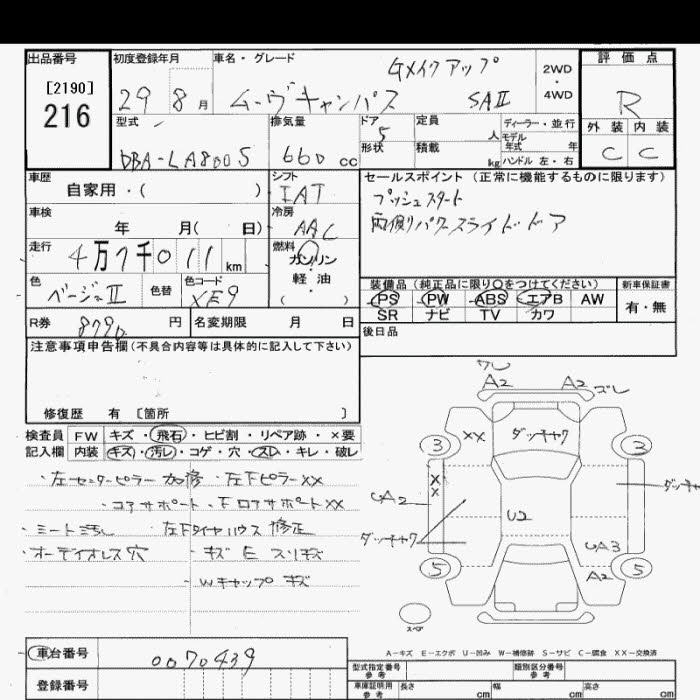 出品番号 [2190] 216
初度登録年月 29 8 月
車名・グレード Gメイクアップ
ムーヴキャンバス SAⅡ
2WD・4WD
評価点 R
外装 内装
C C
型式 DBA-LA800S
排気量 660 cc
ドア 5 形状
定員 人 積載 kg
ディーラー・並行
モデル年式 年
ハンドル 左・右
車歴 自家用・( )
シフト IAT
セールスポイント (正常に機能するものに限ります)
プッシュスタート
両側パワースライドドア
車検 年 月( 日)
冷房 AAC
走行 4万7千011km
燃料 ガソリン 軽油・( )
色 ベージュⅡ 色替 色コード XE9
装備品 (純正品に限り○をつけてください)
PS PW ABS エアB AW
SR ナビ TV カワ
新車保証書 有・無
R券 8790 円 名変期限 月 日
後日品
注意事項申告欄 (不具合内容等は具体的に記入して下さい)
修復歴 有 〔箇所 〕
検査員記入欄
FW キズ・飛石・ヒビ割・リペア跡・×要
内装 キズ・汚レ・コゲ・穴・スレ・キレ・破レ
・左センターピラー加修 ・左下ピラーXX
・コアサポート・下ロアサポートXX
・シート汚レ ・左下タイヤハウス修正
・オーディオレス穴 ・キズ E スリキズ
・Wキャップキズ
ワレ
A2 A2 ズレ
3 XX ダッシャク 3
XX
UA2 ダッシャク
U2
ダッシャク
UA3
5 A2 5
スペア
A-キズ E-エクボ U-凹み W-補修跡 S-サビ C-腐食 XX-交換済
車台番号 0070439
登録番号
型式指定番号 参考 類別区分番号 参考
車庫証明用 参考 長さ cm 幅 cm 高さ cm